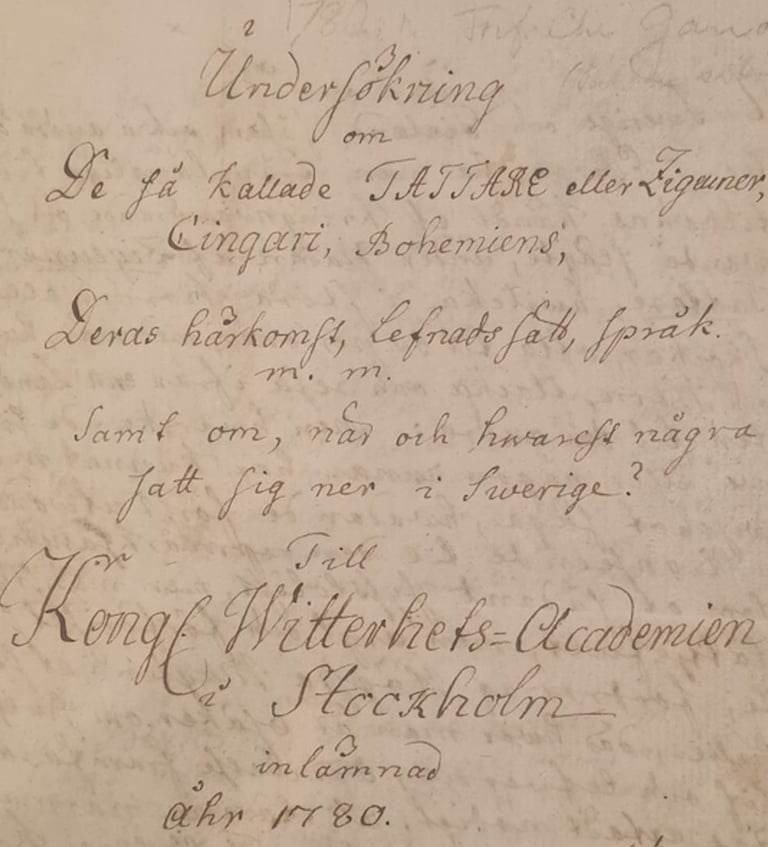 Undersökning
om
De så kallade TATTARE eller Zigeuner,
Cingari, Bohemiens,
Deras härkomst, lefnadssätt, språk.
m. m.
Samt om, när och hwarest några
satt sig ner i Swerige?
Till
Kongl. Witterhets=Academien
i Stockholm
inlämnad
åhr 1780.